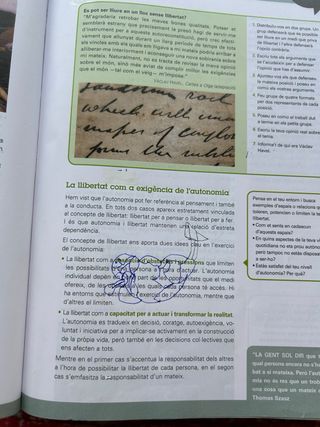 Es pot ser lliure en un lloc sense llibertat?
"M'agradaria retrobar les meves bones qualitats. Potser et
semblarà estrany que precisament la presó hagi de servir-me
d'instrument per a aquesta autorenovació, però crec efectiva-
ment que allunyat durant un llarg període de temps de tots
els vincles amb els quals em lligava a mi mateix podria arribar a
alliberar-me interiorment i aconseguir una nova sobirania sobre
mi mateix. Naturalment, no es tracta de revisar la meva opinió
sobre el món, sinó més aviat de complir millor les exigències
que el món —tal com el veig— m'imposa."
VÁCLAV HAVEL, Cartes a Olga (adaptació)
La llibertat com a exigència de l'autonomia
Hem vist que l'autonomia pot fer referència al pensament i també
a la conducta. En tots dos casos apareix estretament vinculada
al concepte de llibertat: llibertat per a pensar o llibertat per a fer.
I és que autonomia i llibertat mantenen una relació d'estreta
dependència.
El concepte de llibertat ens aporta dues idees clau en l'exercici
de l'autonomia:
• La llibertat com a absència d'obstacles i pressions que limiten
les possibilitats d'una persona a l'hora d'actuar. L'autonomia
individual depèn en gran part de les oportunitats que el medi
ofereix, de les quals cada persona té accés. Hi
ha entorns que estimulen l'exercici de l'autonomia, mentre que
d'altres el limiten.
• La llibertat com a capacitat per a actuar i transformar la realitat.
L'autonomia es tradueix en decisió, coratge, autoexigència, vo-
luntat i iniciativa per a implicar-se activament en la construcció
de la pròpia vida, però també en les decisions col·lectives que
ens afecten a tots.
Mentre en el primer cas s'accentua la responsabilitat dels altres
a l'hora de possibilitar la llibertat de cada persona, en el segon
cas s'emfasitza la responsabilitat d'un mateix.
1. Distribuïu-vos en dos grups. Un
grup defensarà que es possible
ser lliure en un medi que priva
de llibertat i l'altre defensarà
l'opció contrària.
2. Escriu tots els arguments que
se t'acudeixin per a defensar
l'opció que has d'assumir.
3. Ajunteu-vos els que defenseu
la mateixa posició i poseu en
comú els vostres arguments.
4. Feu grups de quatre formats
per dos representants de cada
posició.
5. Poseu en comú el treball dut
a terme en els petits grups.
6. Escriu la teva opinió real sobre
el tema.
7. Informa't de qui era Václav
Havel.
Pensa en el teu entorn i busca
exemples d'espais o relacions que
toleren, potencien o limiten la teva
llibertat.
• Com et sents en cadascun
d'aquests espais?
• En quins aspectes de la teva vida
quotidiana no ets prou autònom
tampoc no estàs disposat
a ser-ho?
• Estàs satisfet del teu nivell
d'autonomia? Per què?
"LA GENT SOL DIR que
qual persona encara no s'ha
bat a si mateixa. Però l'auto
mia no és res que un trobi
una cosa que un mateix
Thomas Szasz